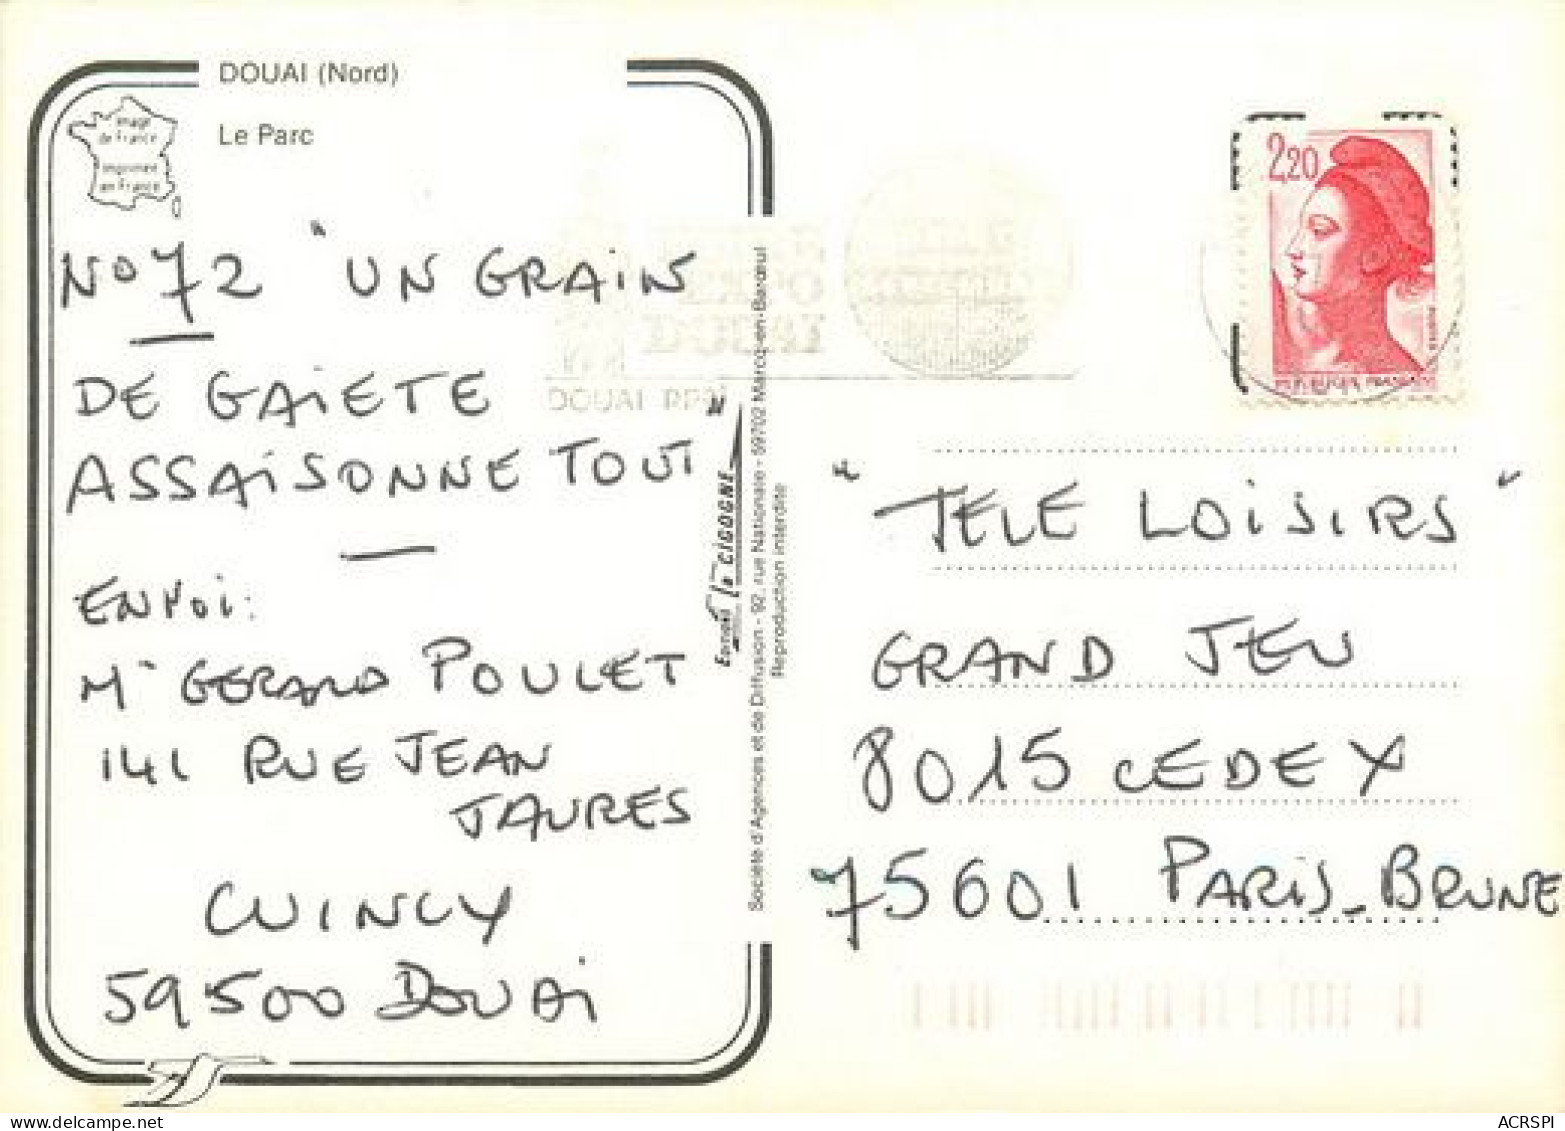 DOUAI (Nord)
Le Parc
Image
de France
Imprimée
en France
N° 72 "UN GRAIN
DE GAIETE
ASSAISONNE TOUT"
ENVOI:
Mr GERARD POULET
141 RUE JEAN
JAURES
CUINCY
59500 DOUAI
DOUAI
DOUAI RP
Editions la CIGOGNE
Société d'Agences et de Diffusion - 92, rue Nationale - 59702 Marcq-en-Barœul
Reproduction interdite
2,20
"TELE LOISIRS"
GRAND JEU
8015 CEDEX
75601 PARIS-BRUNE
ACRSPI